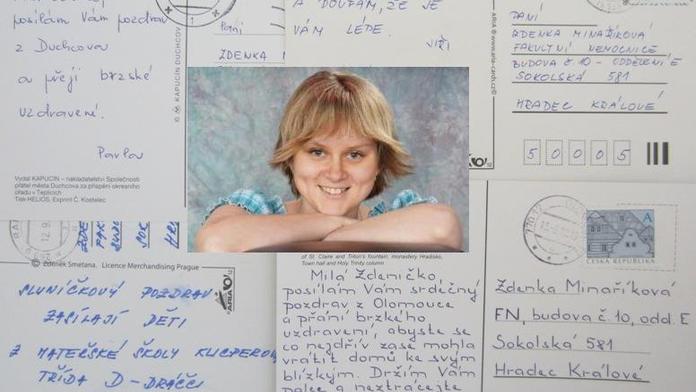 posílám Vám pozdrav
z Duchcova
a přeji brzské
uzdravení.
Pavlov
Vydal KAPUCÍN - nakladatelství Společnosti
přátel města Duchcova za přispění okresního
úřadu v Teplicích
Tisk HELIOS, Exprint Č. Kostelec
© KAPUCÍN DUCHCOV
Paní
ZDENKA
A DOUFÁM, ŽE JE
VÁM LÉPE.
PANÍ
ZDENKA MINAŘÍKOVÁ
FAKULTNÍ NEMOCNICE
BUDOVA č 10 - ODDĚLENÍ E
SOKOLSKÁ 581
HRADEC KRÁLOVÉ
5 0 0 0 5
© Zdeněk Smetana. Licence Merchandising Prague
SLUNÍČKOVÝ POZDRAV
ZASÍLAJÍ DĚTI
Z MATEŘSKÉ ŠKOLY KLICPEROV
TŘÍDA D - DRÁČCI
of St. Claire and Triton's fountain, monastery Hradisko,
Town hall and Holy Trinity column
Milá Zdeničko
posílám Vám srdečný
pozdrav z Olomouce
a přání brzkého
uzdravení, abyste se
co nejdřív zase mohla
vrátit domů ke svým
blízkým. Držím Vám
palce a neztrácejte
A
ČESKÁ REPUBLIKA
Zdenka Minaříková
FN, budova č. 10, odd. E
Sokolská 581
Hradec Králové